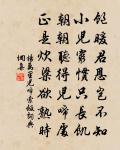 飽暖君恩豈不知
小兒窮慣只長飢
朝朝聽得兒啼處
正是炊粱欲熟時
楊萬里兒啼索飯詞典
網集